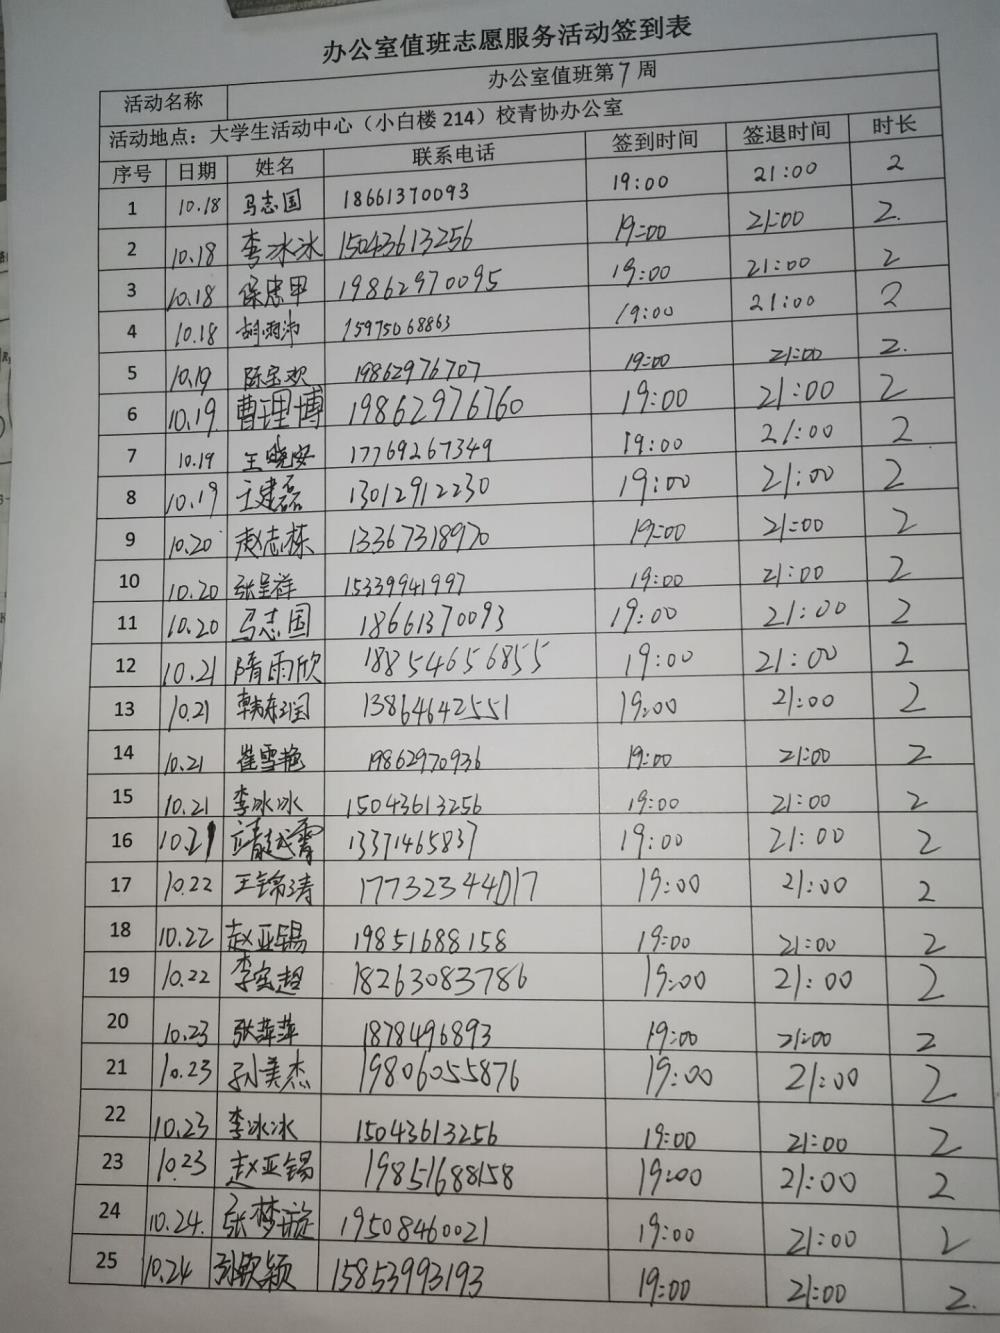 办公室值班志愿服务活动签到表
活动名称 办公室值班第7周
活动地点：大学生活动中心（小白楼214）校青协办公室
序号 日期 姓名 联系电话 签到时间 签退时间 时长
1 10.18 马志国 18661370093 19:00 21:00 2
2 10.18 李冰冰 15043613256 19:00 21:00 2.
3 10.18 保忠甲 19862970095 19:00 21:00 2
4 10.18 胡雨沛 15975068863 19:00 21:00 2
5 10.19 陈宝欢 19862976707 19:00 21:00 2.
6 10.19 曹理博 19862976760 19:00 21:00 2
7 10.19 王晓安 17769267349 19:00 21:00 2
8 10.19 王建磊 13012912230 19:00 21:00 2
9 10.20 赵志栋 13367318970 19:00 21:00 2
10 10.20 张呈祥 15339941997 19:00 21:00 2
11 10.20 马志国 18661370093 19:00 21:00 2
12 10.21 隋雨欣 18854656855 19:00 21:00 2
13 10.21 韩东润 13864642551 19:00 21:00 2
14 10.21 崔雪艳 19862970936 19:00 21:00 2
15 10.21 李冰冰 15043613256 19:00 21:00 2
16 10.21 靖越霄 13371465837 19:00 21:00 2
17 10.22 王锦涛 17732344017 19:00 21:00 2
18 10.22 赵亚锡 19851688158 19:00 21:00 2
19 10.22 李宝超 18263083786 19:00 21:00 2
20 10.23 张萍萍 1878496893 19:00 21:00 2
21 10.23 孙美杰 19806055876 19:00 21:00 2
22 10.23 李冰冰 15043613256 19:00 21:00 2
23 10.23 赵亚锡 19851688158 19:00 21:00 2
24 10.24. 张梦璇 19508460021 19:00 21:00 2
25 10.24 颖 15853993193 19:00 21:00 2.